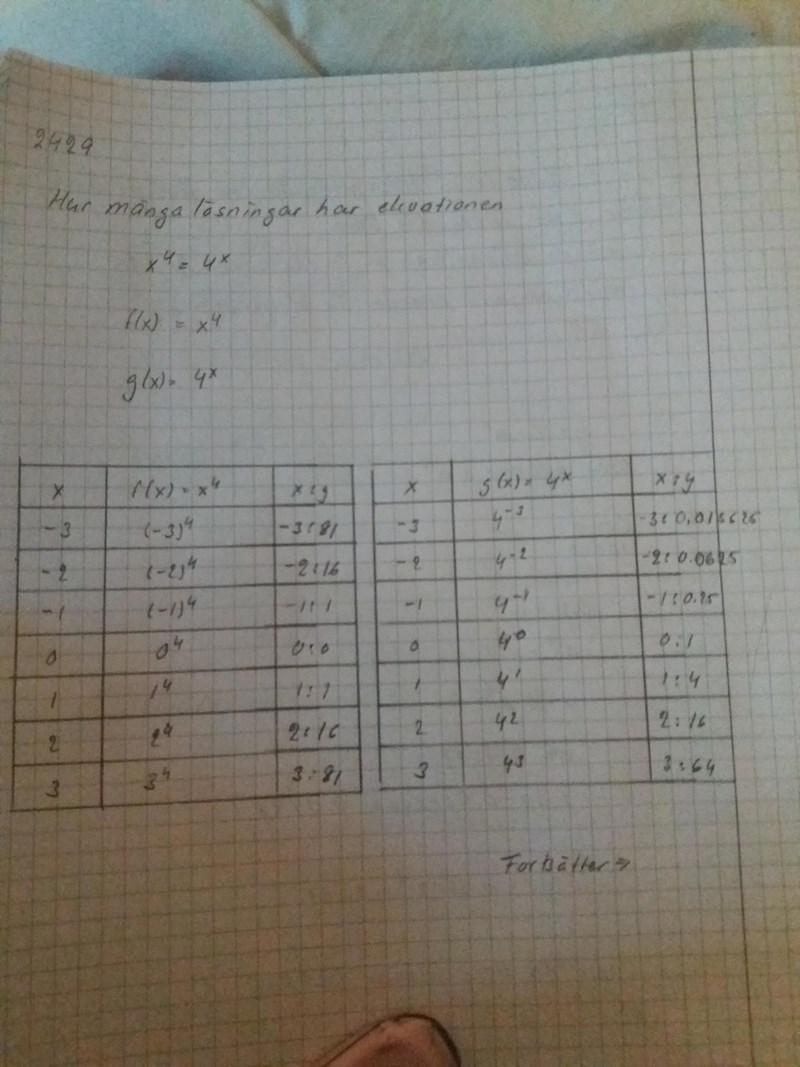 2429
Hur många lösningar har ekvationen
x⁴ = 4ˣ
f(x) = x⁴
g(x) = 4ˣ
x f(x) = x⁴ x:y
-3 (-3)⁴ -3:81
-2 (-2)⁴ -2:16
-1 (-1)⁴ -1:1
0 0⁴ 0:0
1 1⁴ 1:1
2 2⁴ 2:16
3 3⁴ 3:81
x g(x) = 4ˣ x:y
-3 4⁻³ -3:0.015625
-2 4⁻² -2:0.0625
-1 4⁻¹ -1:0.25
0 4⁰ 0:1
1 4¹ 1:4
2 4² 2:16
3 4³ 3:64
Fortsätter ⇒